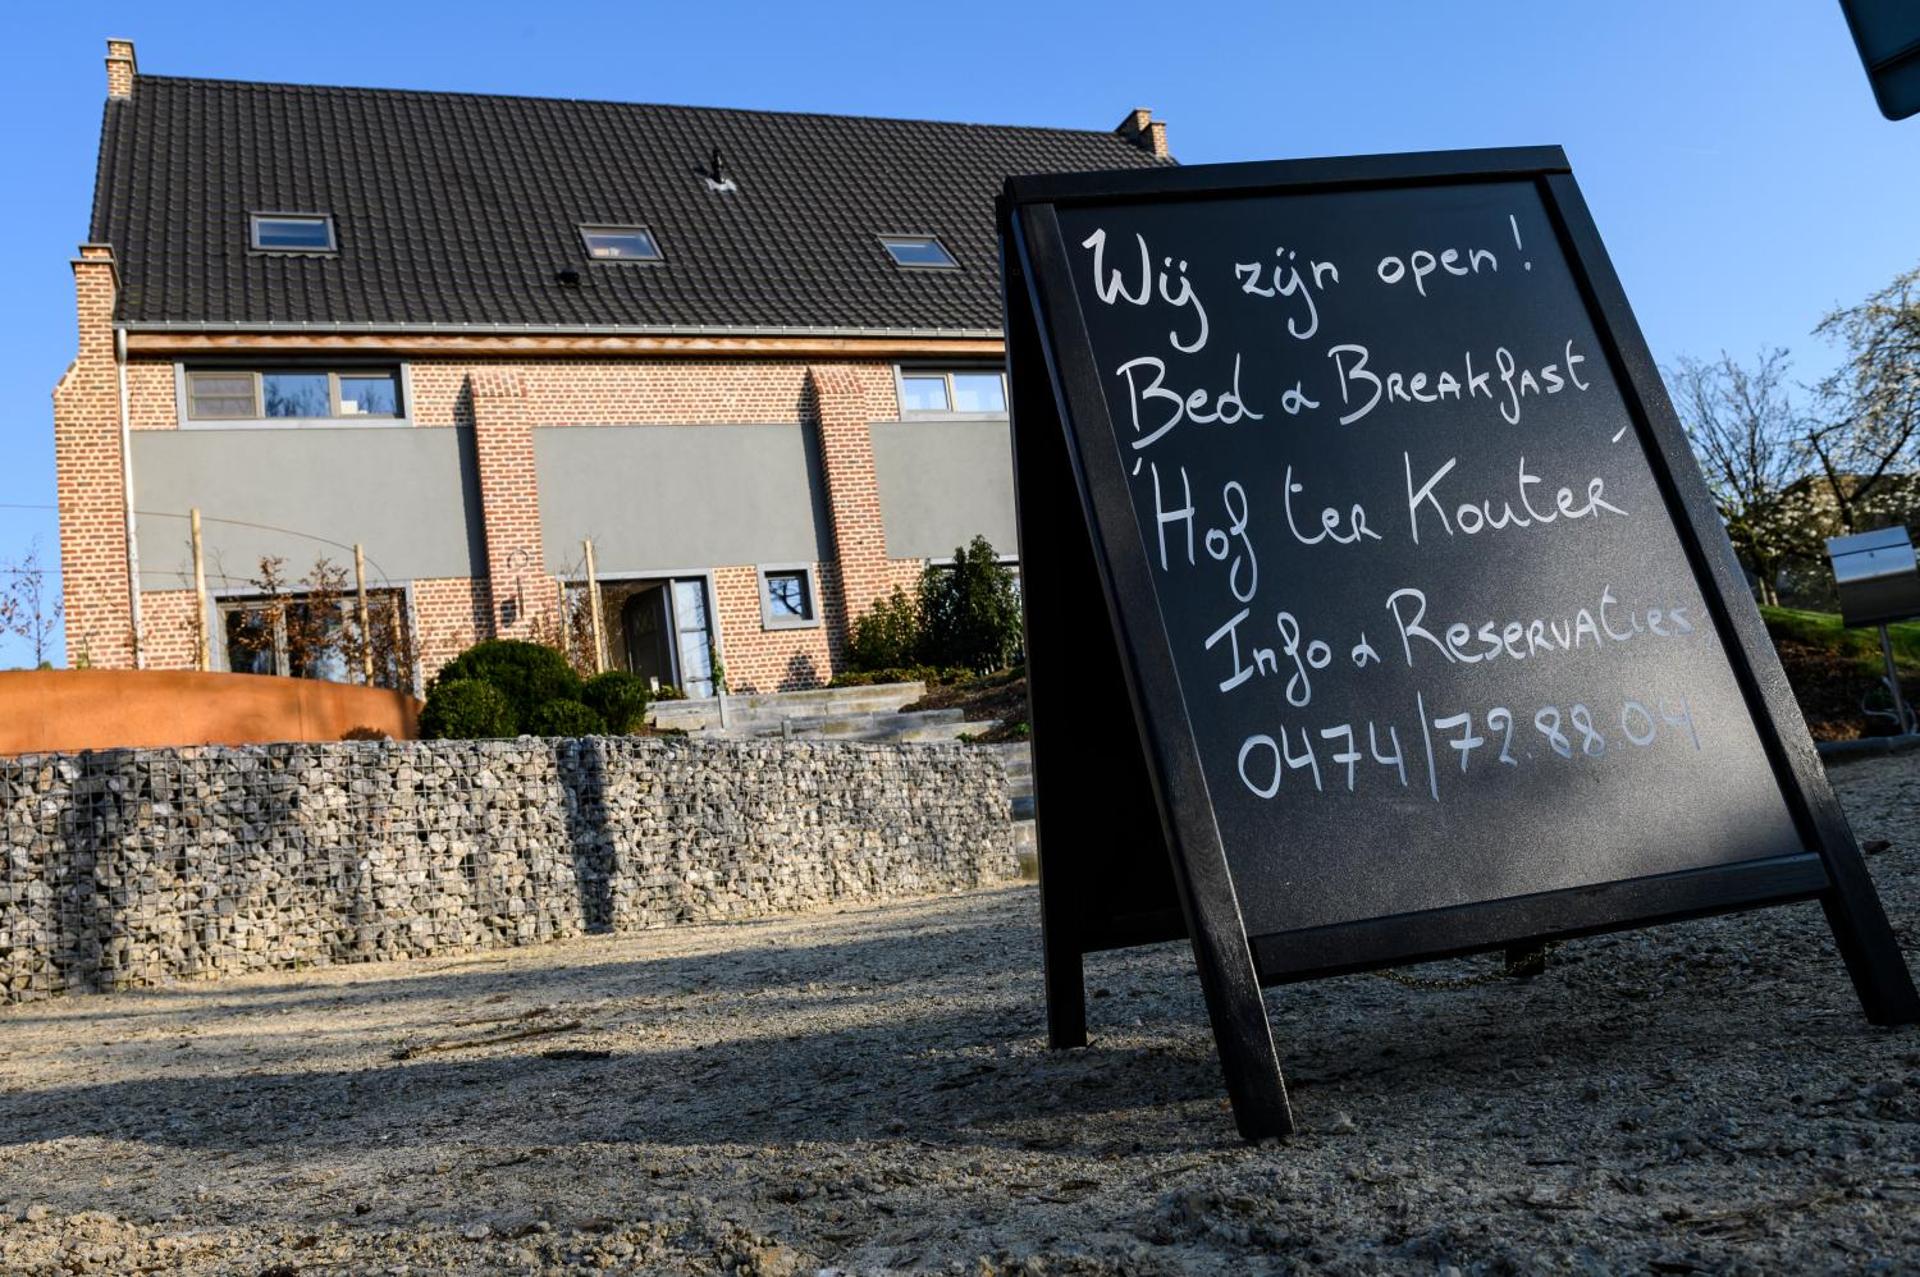 Wij zijn open!
Bed & Breakfast
'Hof ter Kouter'
Info & Reservaties
0474/72.88.04